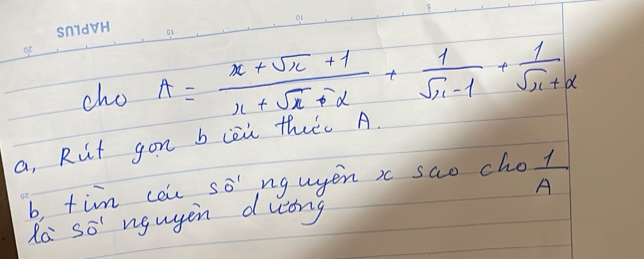 HAPLUS
20 15 10 5
cho A = \frac{x + \sqrt{x} + 1}{x + \sqrt{x} - 2} + \frac{1}{\sqrt{x} - 1} + \frac{1}{\sqrt{x} + 2}
a, Rút gọn biểu thức A.
b, tìm các số nguyên x sao cho \frac{1}{A}
là số nguyên dương